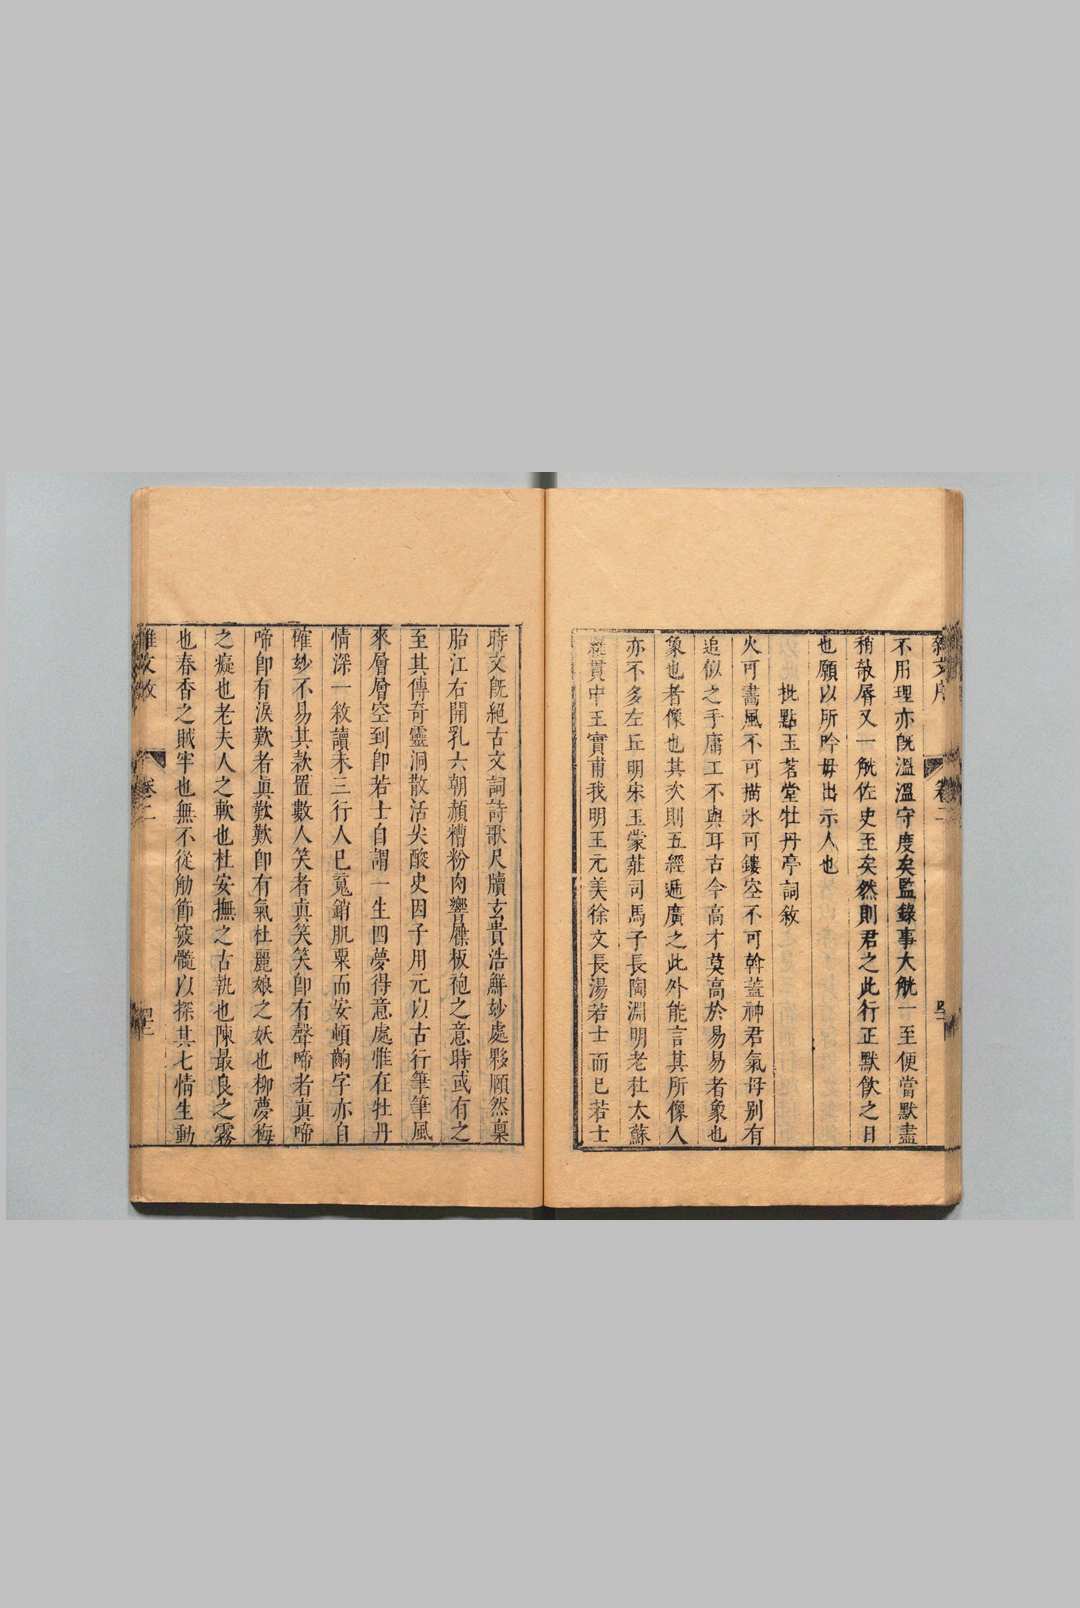 不用理亦旣溫溫守度矣監錄事大觥一至便當默盡
稍敧唇又一觥佐史至矣然則君之此行正默飲之日
也願以所吟毋出示人也
批點玉茗堂牡丹亭詞敘
火可畫風不可描氷可鏤空不可斡蓋神君氣母別有
追似之手庸工不與耳古今高才莫高於易易者象也
象也者像也其次則五經遞廣之此外能言其所像人
亦不多左丘明宋玉蒙莊司馬子長陶淵明老杜太蘇
羅貫中王實甫我明王元美徐文長湯若士而已若士
時文旣絕古文詞詩歌尺牘玄貴浩鮮妙處夥頤然稟
胎江右開乳六朝頗糟粉肉響屧板袍之意時或有之
至其傳奇靈洞散活尖酸史因子用元以古行筆筆風
來層層空到卽若士自謂一生四夢得意處惟在牡丹
情深一敘讀未三行人已䰟銷肌粟而安頓齣字亦自
確妙不易其款置數人笑者眞笑笑卽有聲啼者眞啼
啼卽有淚歎者眞歎歎卽有氣杜麗娘之妖也柳夢梅
之癡也老夫人之軟也杜安撫之古執也陳最良之霧
也春香之賊牢也無不從觔節竅髓以探其七情生動
雜文敘
卷二